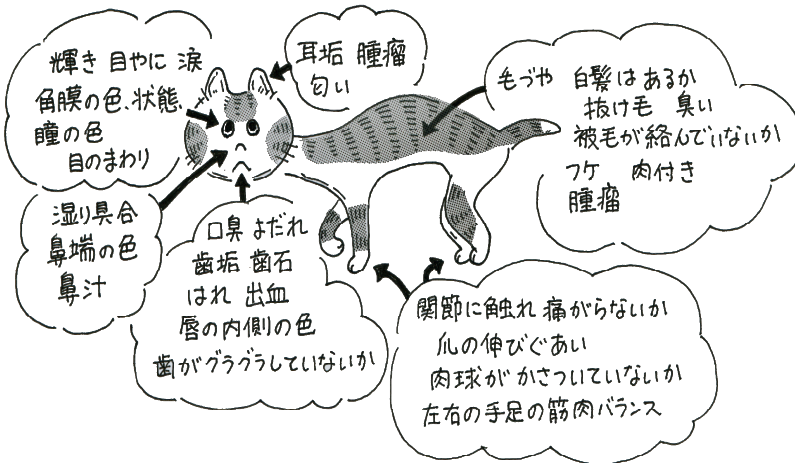 輝き 目やに 涙
角膜の色、状態、
瞳の色
目のまわり
耳垢 腫瘤
匂い
毛づや 白髪はあるか
抜け毛 臭い
被毛が絡んでいないか
フケ 肉付き
腫瘤
湿り具合
鼻端の色
鼻汁
口臭 よだれ
歯垢 歯石
はれ 出血
唇の内側の色
歯がグラグラしていないか
関節に触れ 痛がらないか
爪の伸びぐあい
肉球が かさついていないか
左右の手足の筋肉バランス